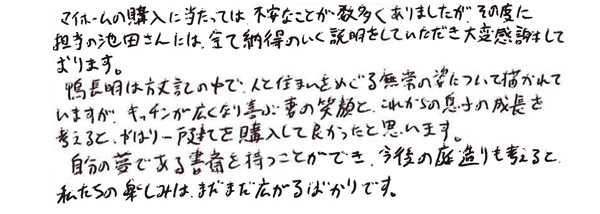 マイホームの購入に当たっては、不安なことが数多くありましたが、その度に
担当の池田さんには、全て納得のいく説明をしていただき大変感謝して
おります。
鴨長明は方丈記の中で、人と住まいをめぐる無常の姿について描かれて
いますが、キッチンが広くなり喜ぶ妻の笑顔と、これからの息子の成長を
考えると、やはり一戸建てを購入して良かったと思います。
自分の夢である書斎を持つことができ、今後の庭造りも考えると、
私たちの楽しみは、まだまだ広がるばかりです。